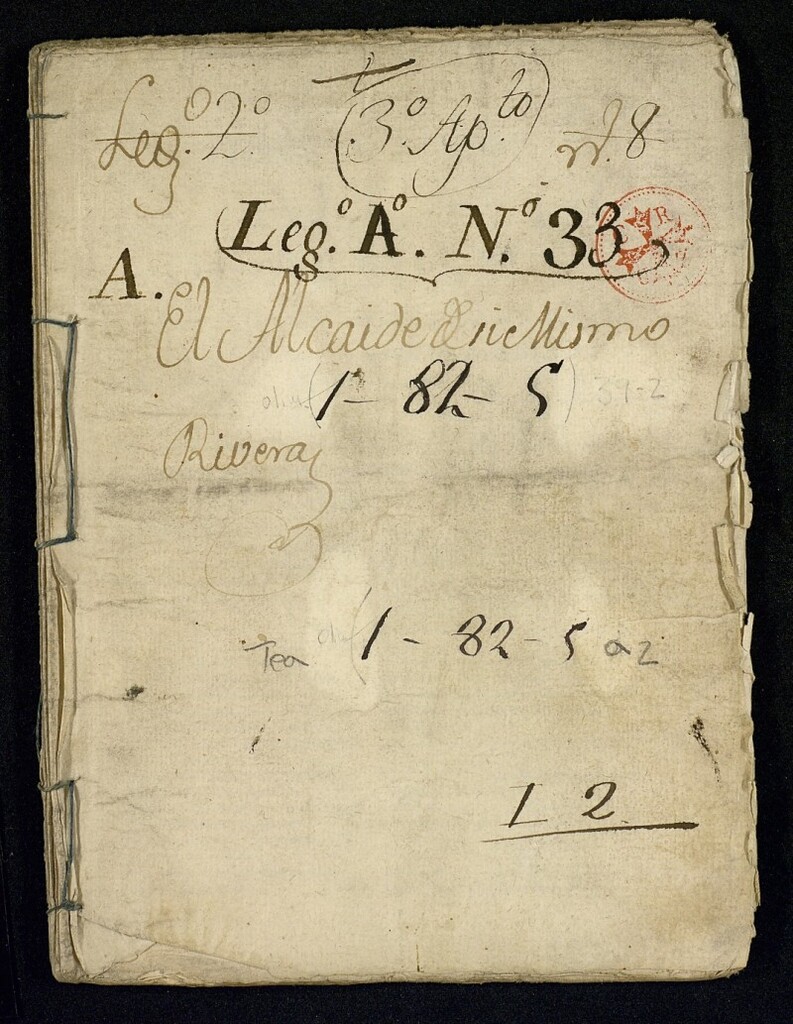 Leg.º 2.º (3.º Ap.to) nº. 8
Leg.º Aº. N.º 33
A.
El Alcaide de si Mismo
(1-82-5)
Rivera
Tea (1-82-5 a2
1 2